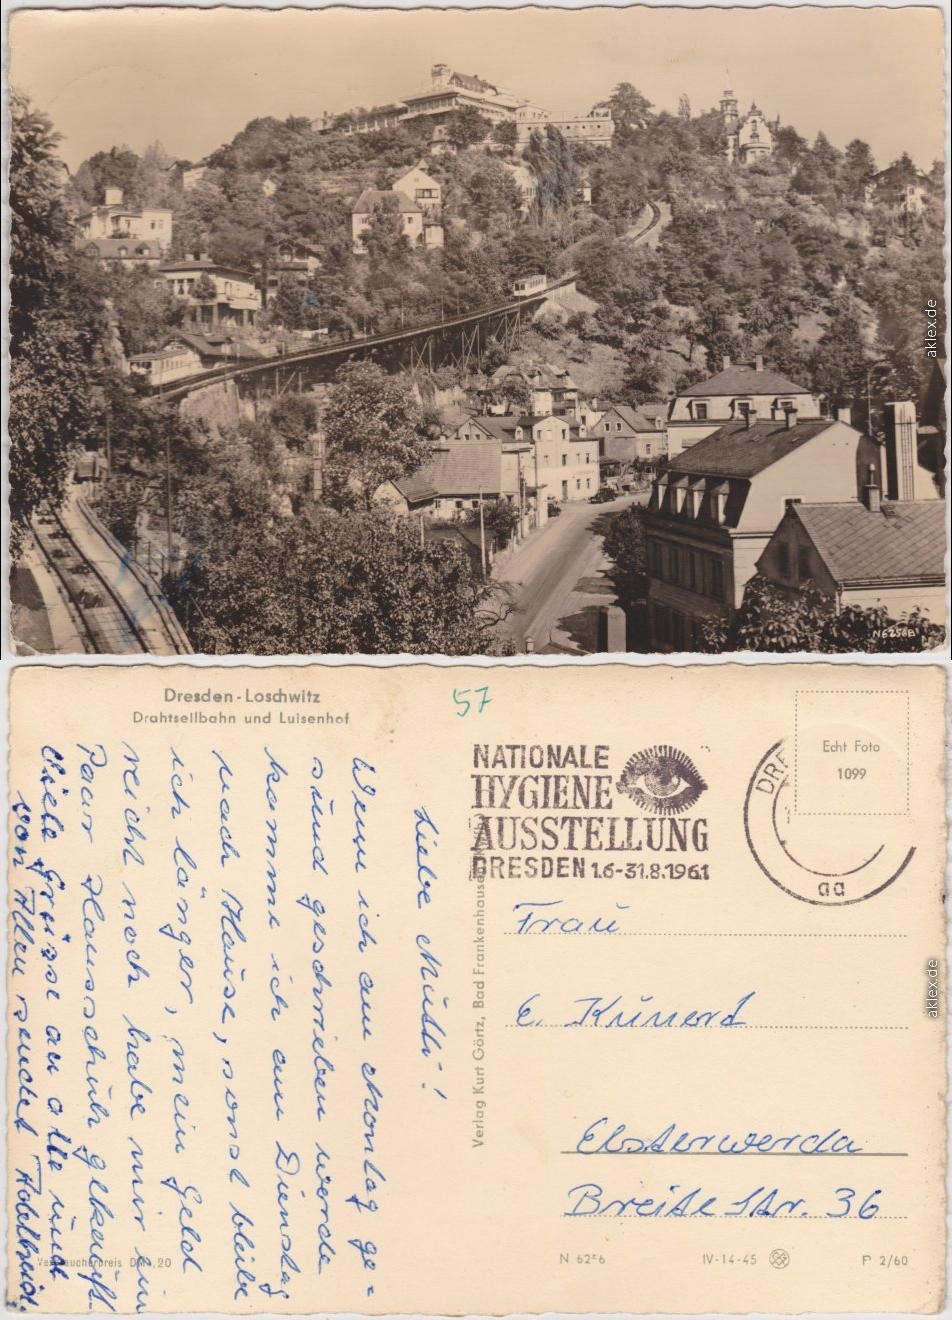 N6256B
aklex.de
Dresden-Loschwitz
Drahtseilbahn und Luisenhof
57
NATIONALE
HYGIENE
AUSSTELLUNG
DRESDEN 1.6-31.8.1961
DRE
aa
Echt Foto
1099
Liebe Mutti!
Wenn ich am Montag ge-
sund geschrieben werde
komme ich am Dienstag
nach Hause, sonst bleibe
ich länger, mein Geld
reicht noch habe mir ein
Paar Hausschuh gekauft.
Viele Grüsse an alle und
von Allen sendet
Verlag Kurt Görtz, Bad Frankenhausen
Frau
E. Kunerd
Elsterwerda
Breite Str. 36
Verbraucherpreis DM 0,20
N 6256
IV-14-45
P 2/60
aklex.de